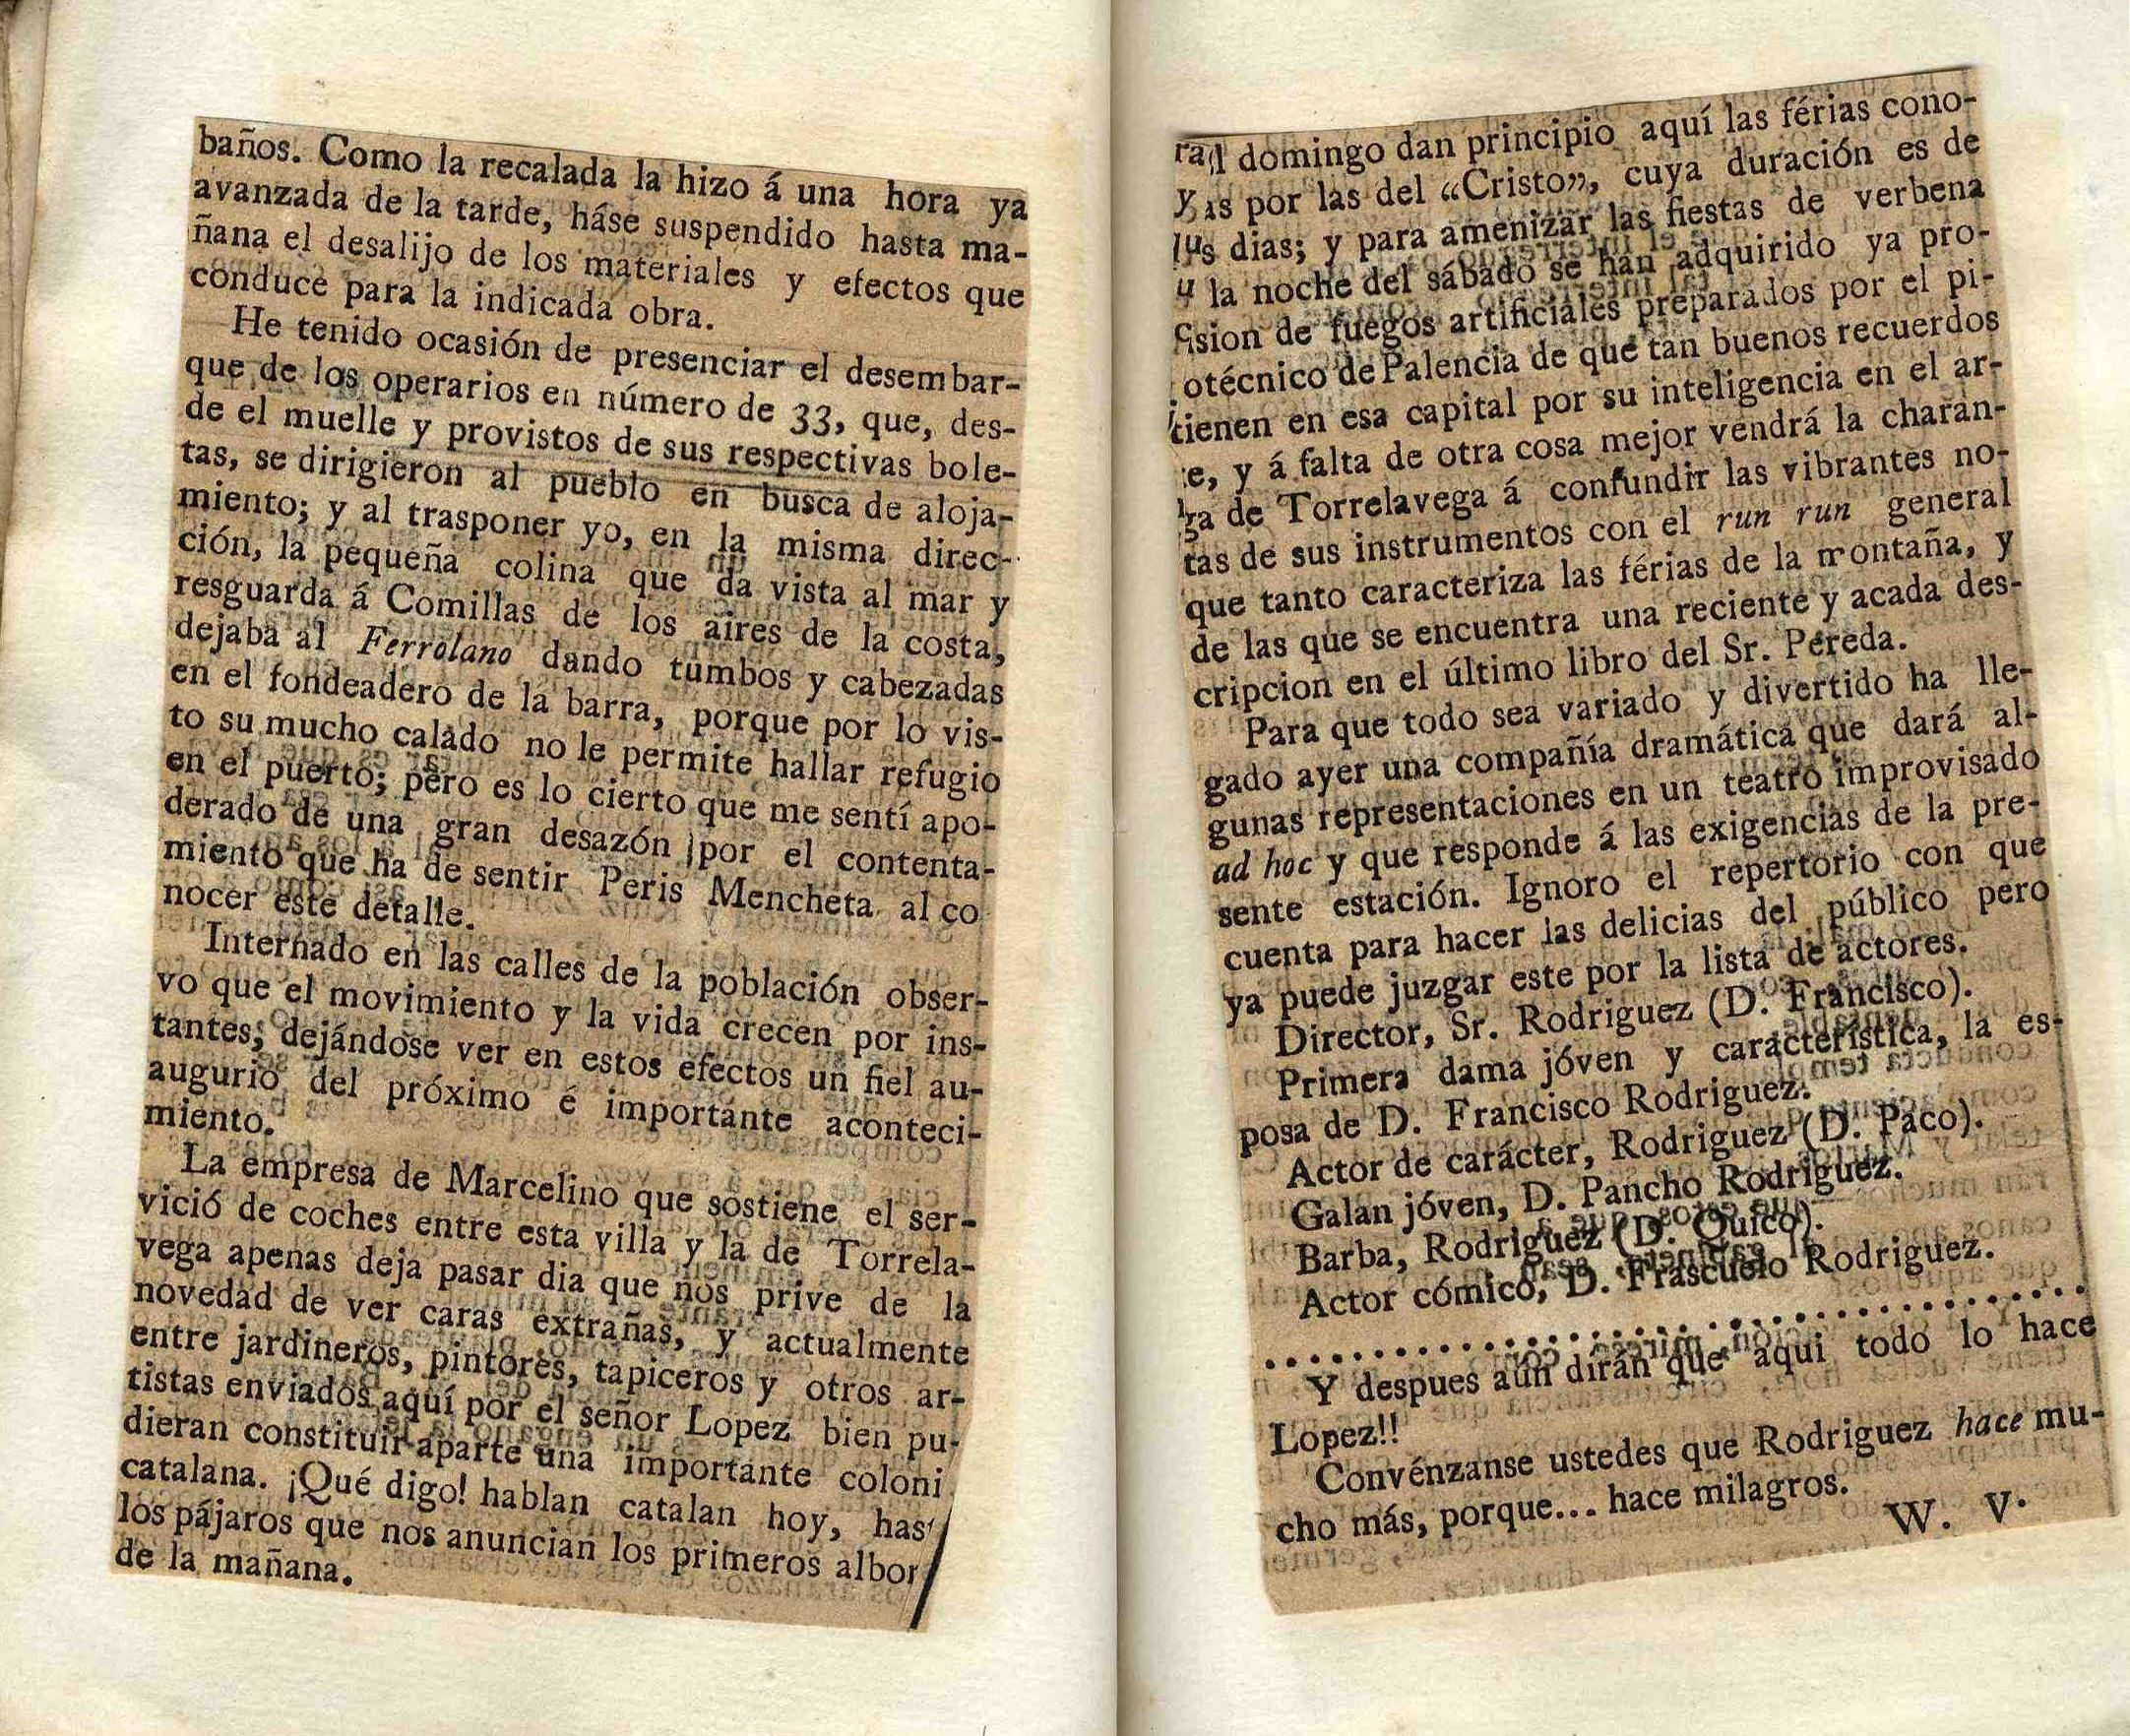 baños. Como la recalada la hizo á una hora ya
avanzada de la tarde, háse suspendido hasta ma-
ñana el desalijo de los materiales y efectos que
conduce para la indicada obra.
He tenido ocasión de presenciar el desembar-
que de los operarios en número de 33, que, des-
de el muelle y provistos de sus respectivas bole-
tas, se dirigieron al pueblo en busca de aloja-
miento; y al trasponer yo, en la misma direc-
ción, la pequeña colina que da vista al mar y
resguarda á Comillas de los aires de la costa,
dejaba al Ferrolano dando tumbos y cabezadas
en el fondeadero de la barra, porque por lo vis-
to su mucho calado no le permite hallar refugio
en el puerto; pero es lo cierto que me sentí apo-
derado de una gran desazón por el contenta-
miento que ha de sentir Peris Mencheta al co
nocer este detalle.
Internado en las calles de la población obser-
vo que el movimiento y la vida crecen por ins-
tantes; dejándose ver en estos efectos un fiel au-
augurio del próximo é importante aconteci-
miento.
La empresa de Marcelino que sostiene el ser-
vició de coches entre esta villa y la de Torrela-
vega apenas deja pasar dia que nos prive de la
novedad de ver caras extrañas, y actualmente
entre jardineros, pintores, tapiceros y otros ar-
tistas enviados aquí por el señor Lopez bien pu-
dieran constituir aparte una importante coloni
catalana. ¡Qué digo! hablan catalan hoy, has
los pájaros que nos anuncian los primeros albor
de la mañana.
l domingo dan principio aquí las férias cono-
as por las del “Cristo”, cuya duración es de
s dias; y para amenizar las fiestas de verbena
la noche del sábado se han adquirido ya pro-
sion de fuegos artificiales preparados por el pi-
otécnico de Palencia de que tan buenos recuerdos
tienen en esa capital por su inteligencia en el ar-
e, y á falta de otra cosa mejor vendrá la charan-
ga de Torrelavega á confundir las vibrantes no-
tas de sus instrumentos con el run run general
que tanto caracteriza las férias de la montaña, y
de las que se encuentra una reciente y acada des-
cripcion en el último libro del Sr. Pereda.
Para que todo sea variado y divertido ha lle-
gado ayer una compañía dramática que dará al-
gunas representaciones en un teatro improvisado
ad hoc y que responde á las exigencias de la pre-
sente estación. Ignoro el repertorio con que
cuenta para hacer las delicias del público pero
ya puede juzgar este por la lista de actores.
Director, Sr. Rodriguez (D. Francisco).
Primera dama jóven y característica, la es-
posa de D. Francisco Rodriguez.
Actor de carácter, Rodriguez (D. Paco).
Galan jóven, D. Pancho Rodriguez.
Barba, Rodriguez (D. Quico).
Actor cómico, D. Frascuelo Rodriguez.
. . . . . . . . . . . . . . . . . . . . . . . . . . . . . .
Y despues aún dirán que aqui todo lo hace
Lopez!!
Convénzanse ustedes que Rodriguez hace mu-
cho más, porque... hace milagros.
W. V.